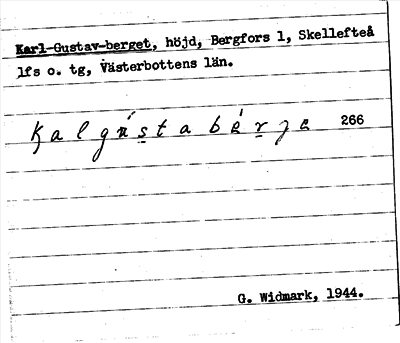 Karl-Gustav-berget, höjd, Bergfors 1, Skellefteå
lfs o. tg, Västerbottens län.
Kalgustabärje 266
G. Widmark, 1944.